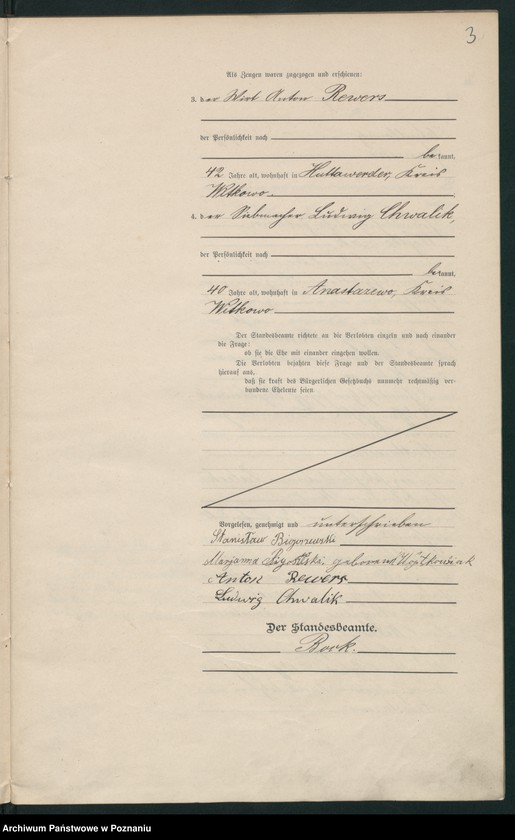 3
Als Zeugen waren zugezogen und erschienen:
3. der Wirt Anton Rewers
der Persönlichkeit nach
bekannt,
42 Jahre alt, wohnhaft in Huttawerder, Kreis
Witkowo.
4. der Siebmacher Ludwig Chwalik,
der Persönlichkeit nach
bekannt,
40 Jahre alt, wohnhaft in Anastazewo, Kreis
Witkowo
Der Standesbeamte richtete an die Verlobten einzeln und nach einander
die Frage:
ob sie die Ehe mit einander eingehen wollen.
Die Verlobten bejahten diese Frage und der Standesbeamte sprach
hierauf aus,
daß sie kraft des Bürgerlichen Gesetzbuchs nunmehr rechtmäßig ver-
bundene Eheleute seien.
Vorgelesen, genehmigt und unterschrieben
Stanisław
Marjanna geborene Wojtkowiak
Anton Rewers
Ludwig Chwalik
Der Standesbeamte.
Bock.
Archiwum Państwowe w Poznaniu